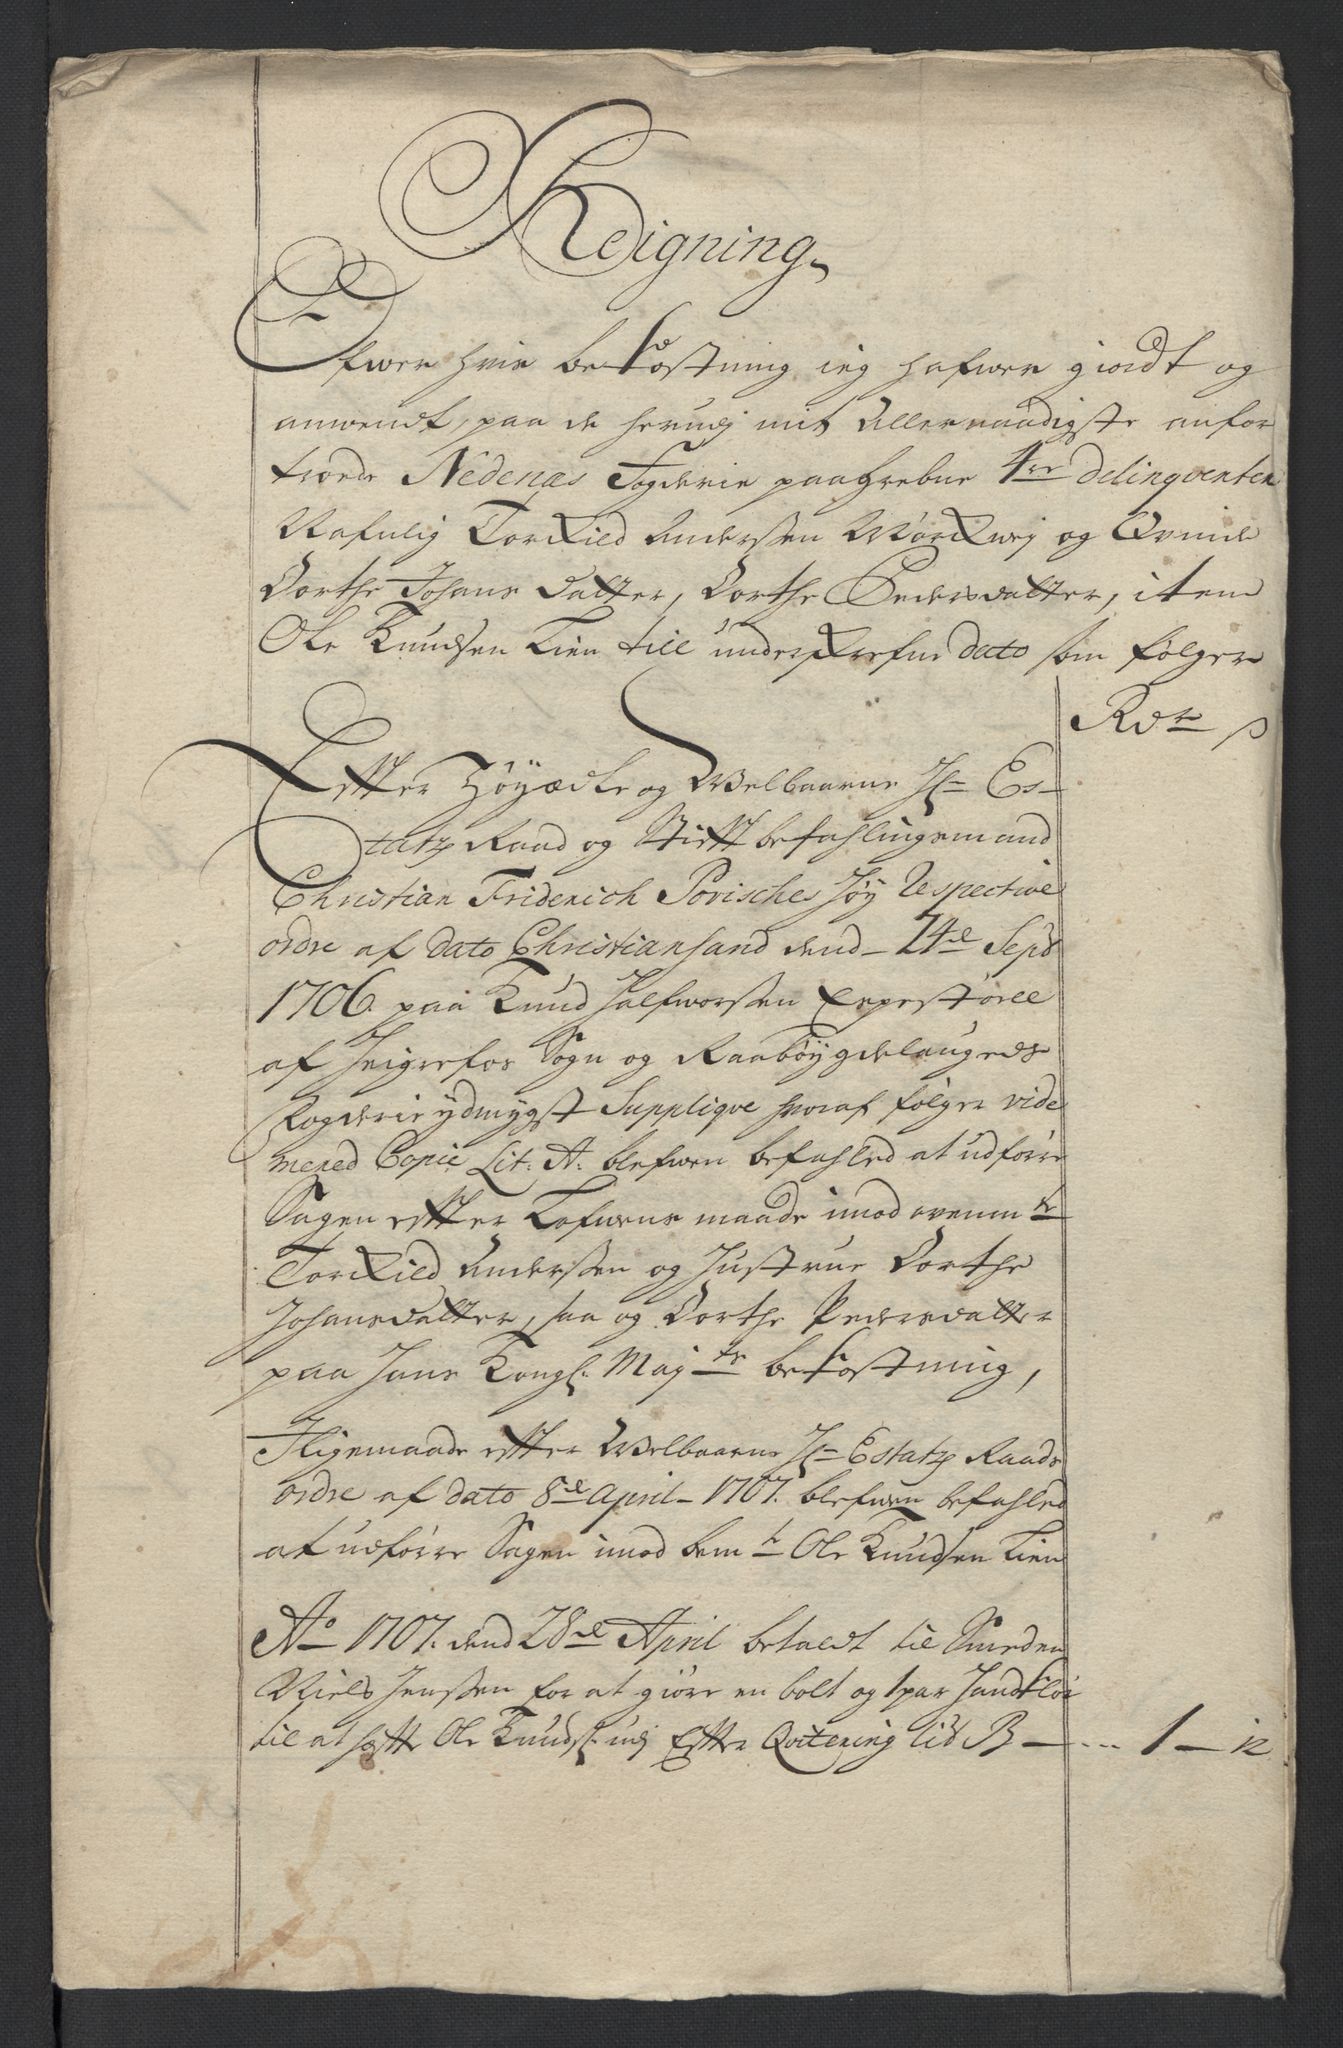 Reigning
Ofwer hvis bekostning ieg hafwer giordt og
anwendt, paa de herudj mit Allernaadigste anfor
troede Nedenæs Fogderie paagrebne 4re Delinqventer
Nafnlig Torkild Anderssen Mørkwej og Qvinde
Dorthe Johans Datter, Dorthe Pedersdatter, item
Ole Knudsen Lien till underskrefne dato som følger
Rdr ß
Effter Høyædle og Welbaarne Hr Es-
tatz Raad og Stifftbefahlingsmand
Christian Friderich Povisches Høy Respective
ordre af dato Christiansand dend 24de Sepbr
1706. paa Knud Halfworssen
af Heigrefos Sogn og Raabøygdelaugeds
Fogderie ydmygst Supplique hvoraf følger vide
mered Copie Lit: A: blefwen befahled at udføre
Sagen effter Lofwens maade imod ovenmte
Torkild Anderssen og Hustrue Dorthe
Johansdatter, saa og Dorthe Pedersdatter
paa Hans Kongl. Mayts bekostning,
Jligemaade effter Welbaarne Hr Estatz Raads
ordre af dato 8de April 1707. blefwen befahled
at udføre Sagen imod bemte Ole Knudsen Lien
Ao 1707. dend 28de April betaldt til Smeden
Niels Jenssen for at giøre en bolt og 1 par Handklør
til at sette Ole Knuds: udj Effter Qvitering Lit B — ... 1 — 12